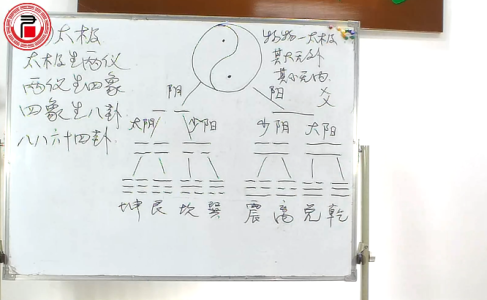 太极
太极生两仪
两仪生四象
四象生八卦
八八六十四卦
物物一太极
其大无外
其小无内
爻
阴
阳
太阴
少阳
少阴
太阳
坤 艮 坎 巽 震 离 兑 乾